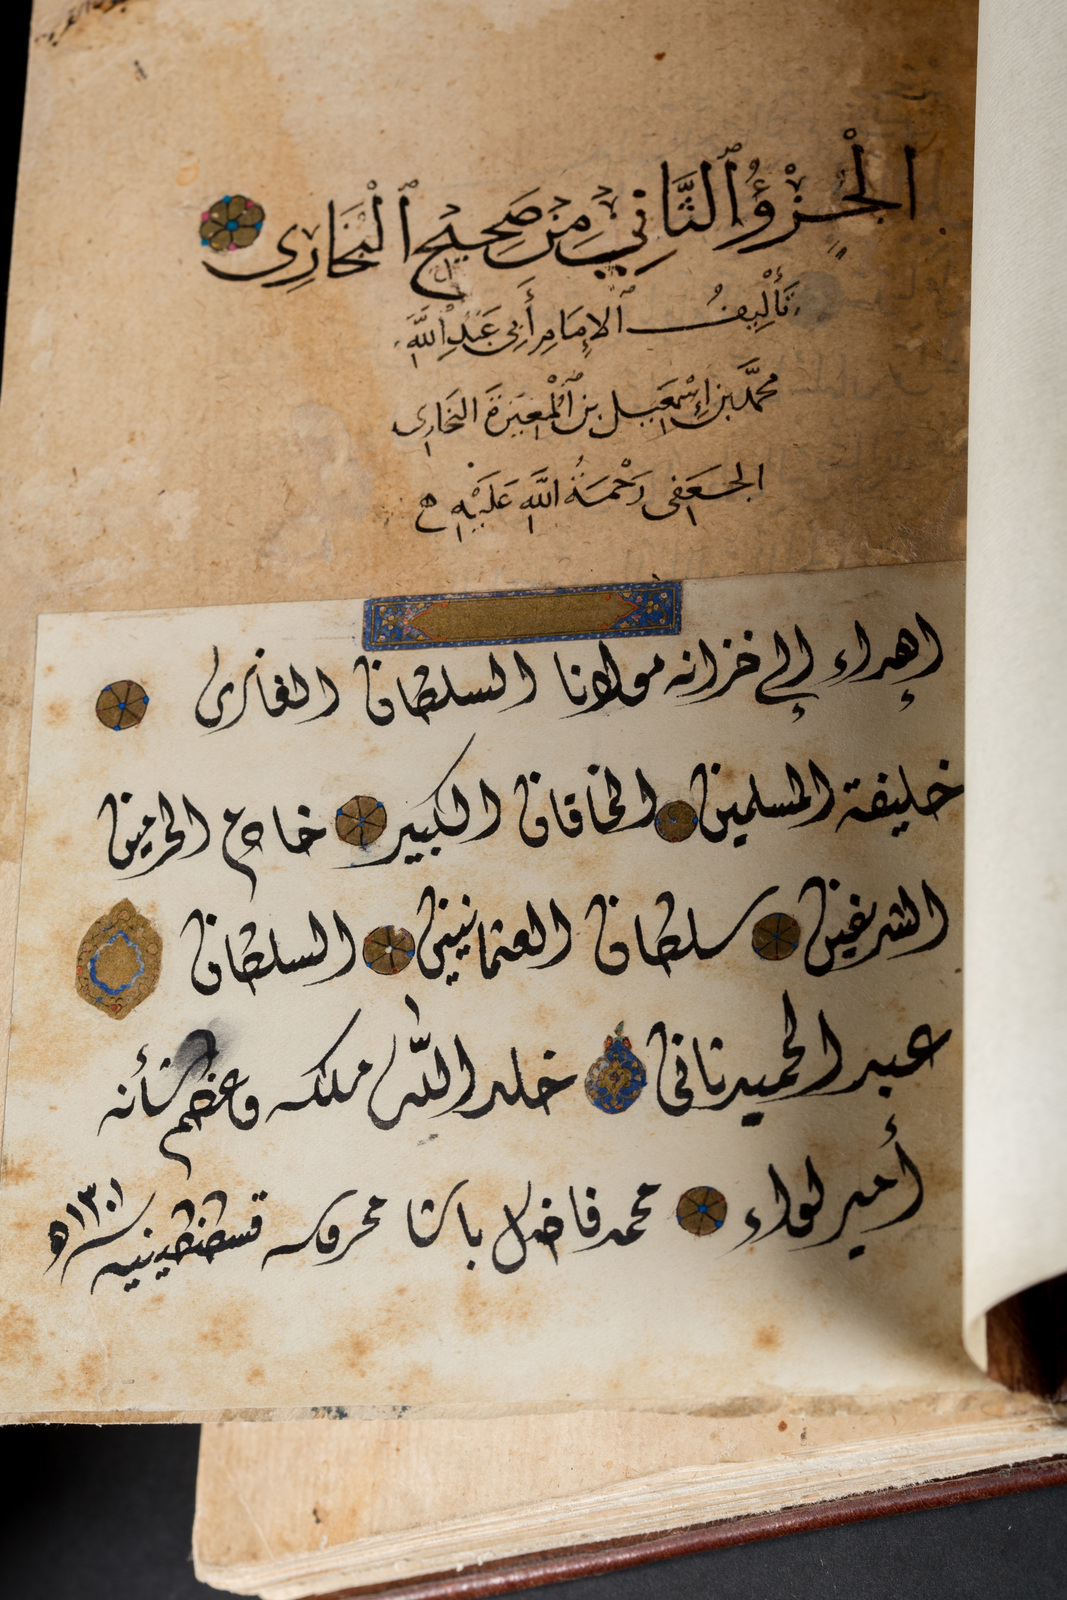 الْجُزْؤُ ٱلثَّانِي مِنْ صَحِيحِ ٱلْبُخَارِى
تَأْلِيفُ ٱلإِمَامِ أَبِى عَبْدِ اللَّهِ
محمَّد بن إِسْمَعِيل بن ٱلْمُغِيرَة البخارى
الجعفى رَحْمَةُ اللَّهِ عَلَيْهِ
إهداء إلى خزانه مولانا السلطان الغازى
خليفة المسلمين الخاقان الكبير خادم الحرمين
الشريفين سلطان العثمانيين السلطان
عبد الحميد ثانى خلد الله ملكه وعظم شأنه
أمير لواء محمد فاضل باشا محروسه قسطنطينيه سنه ١٣٠١هـ